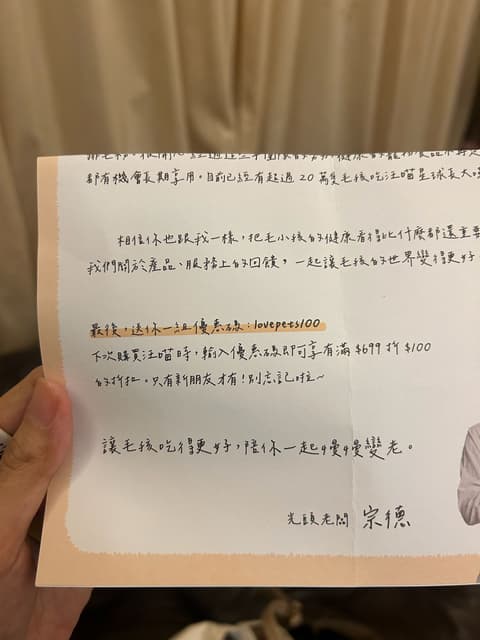 都有機會長期享用。目前已經有超過 20 萬隻毛孩吃汪喵星球長大
相信你也跟我一樣，把毛小孩的健康看得比什麼都還重要
我們關於產品、服務上的回饋，一起讓毛孩的世界變得更好
最後，送你一組優惠碼：lovepets100
下次購買汪喵時，輸入優惠碼即可享有滿 $699 折 $100
的折扣。只有新朋友才有！別忘記啦~
讓毛孩吃得更好，陪你一起慢慢變老。
光頭老闆 宗德